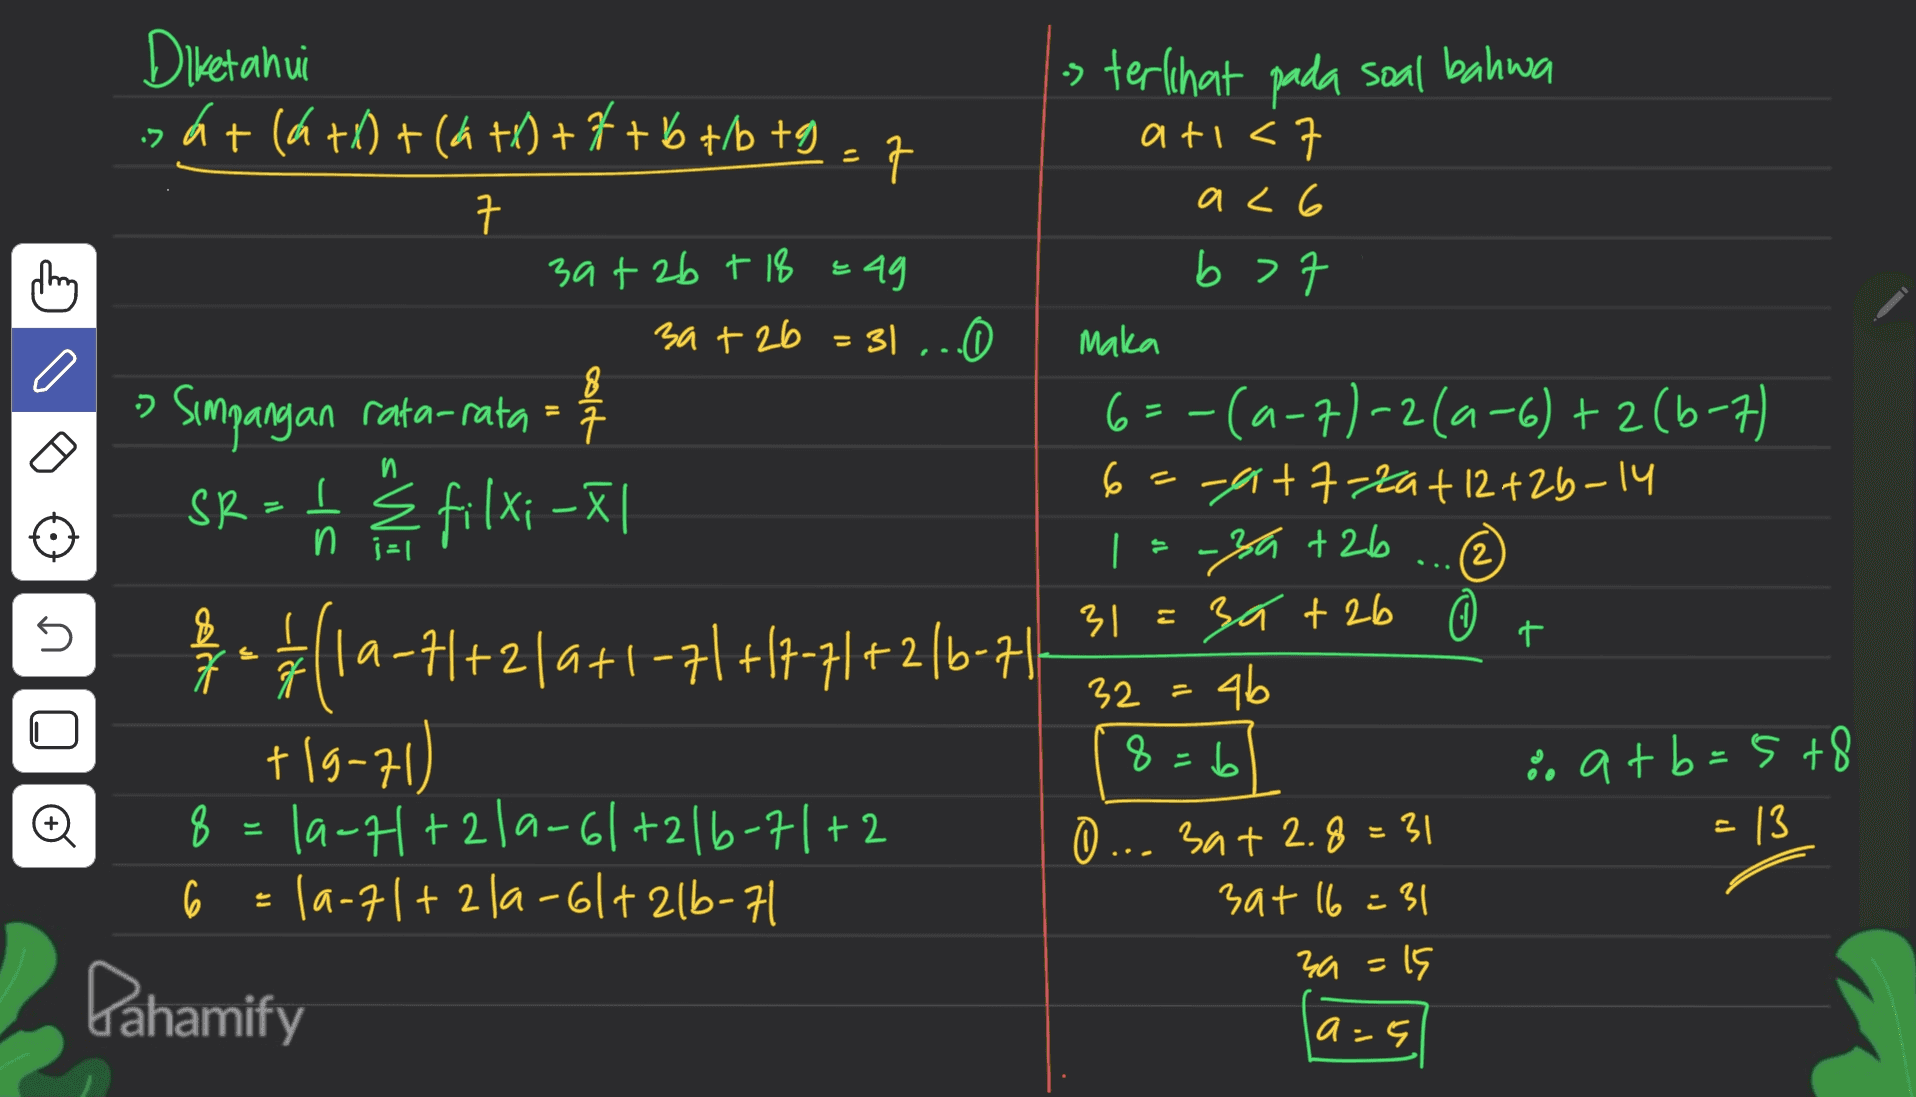 Diketahui
:> a + (a+1) + (a+1) + 7 + b + b + 9 = 7
7
3a + 2b + 18 = 49
3a + 2b = 31 ...①
:> Simpangan rata-rata = 8/7
SR = 1/n n Σ i=1 fi|xi - x̄|
8/7 = 1/7 (|a-7| + 2|a+1-7| + |7-7| + 2|b-7|
+ |9-7|)
8 = |a-7| + 2|a-6| + 2|b-7| + 2
6 = |a-7| + 2|a-6| + 2|b-7|
:> terlihat pada soal bahwa
a+1 < 7
a < 6
b > 7
Maka
6 = -(a-7) - 2(a-6) + 2(b-7)
6 = -a + 7 - 2a + 12 + 2b - 14
1 = -3a + 2b ...②
31 = 3a + 2b ① +
32 = 4b
8 = b
①... 3a + 2.8 = 31
3a + 16 = 31
3a = 15
a = 5
∴ a + b = 5 + 8
= 13
Pahamify